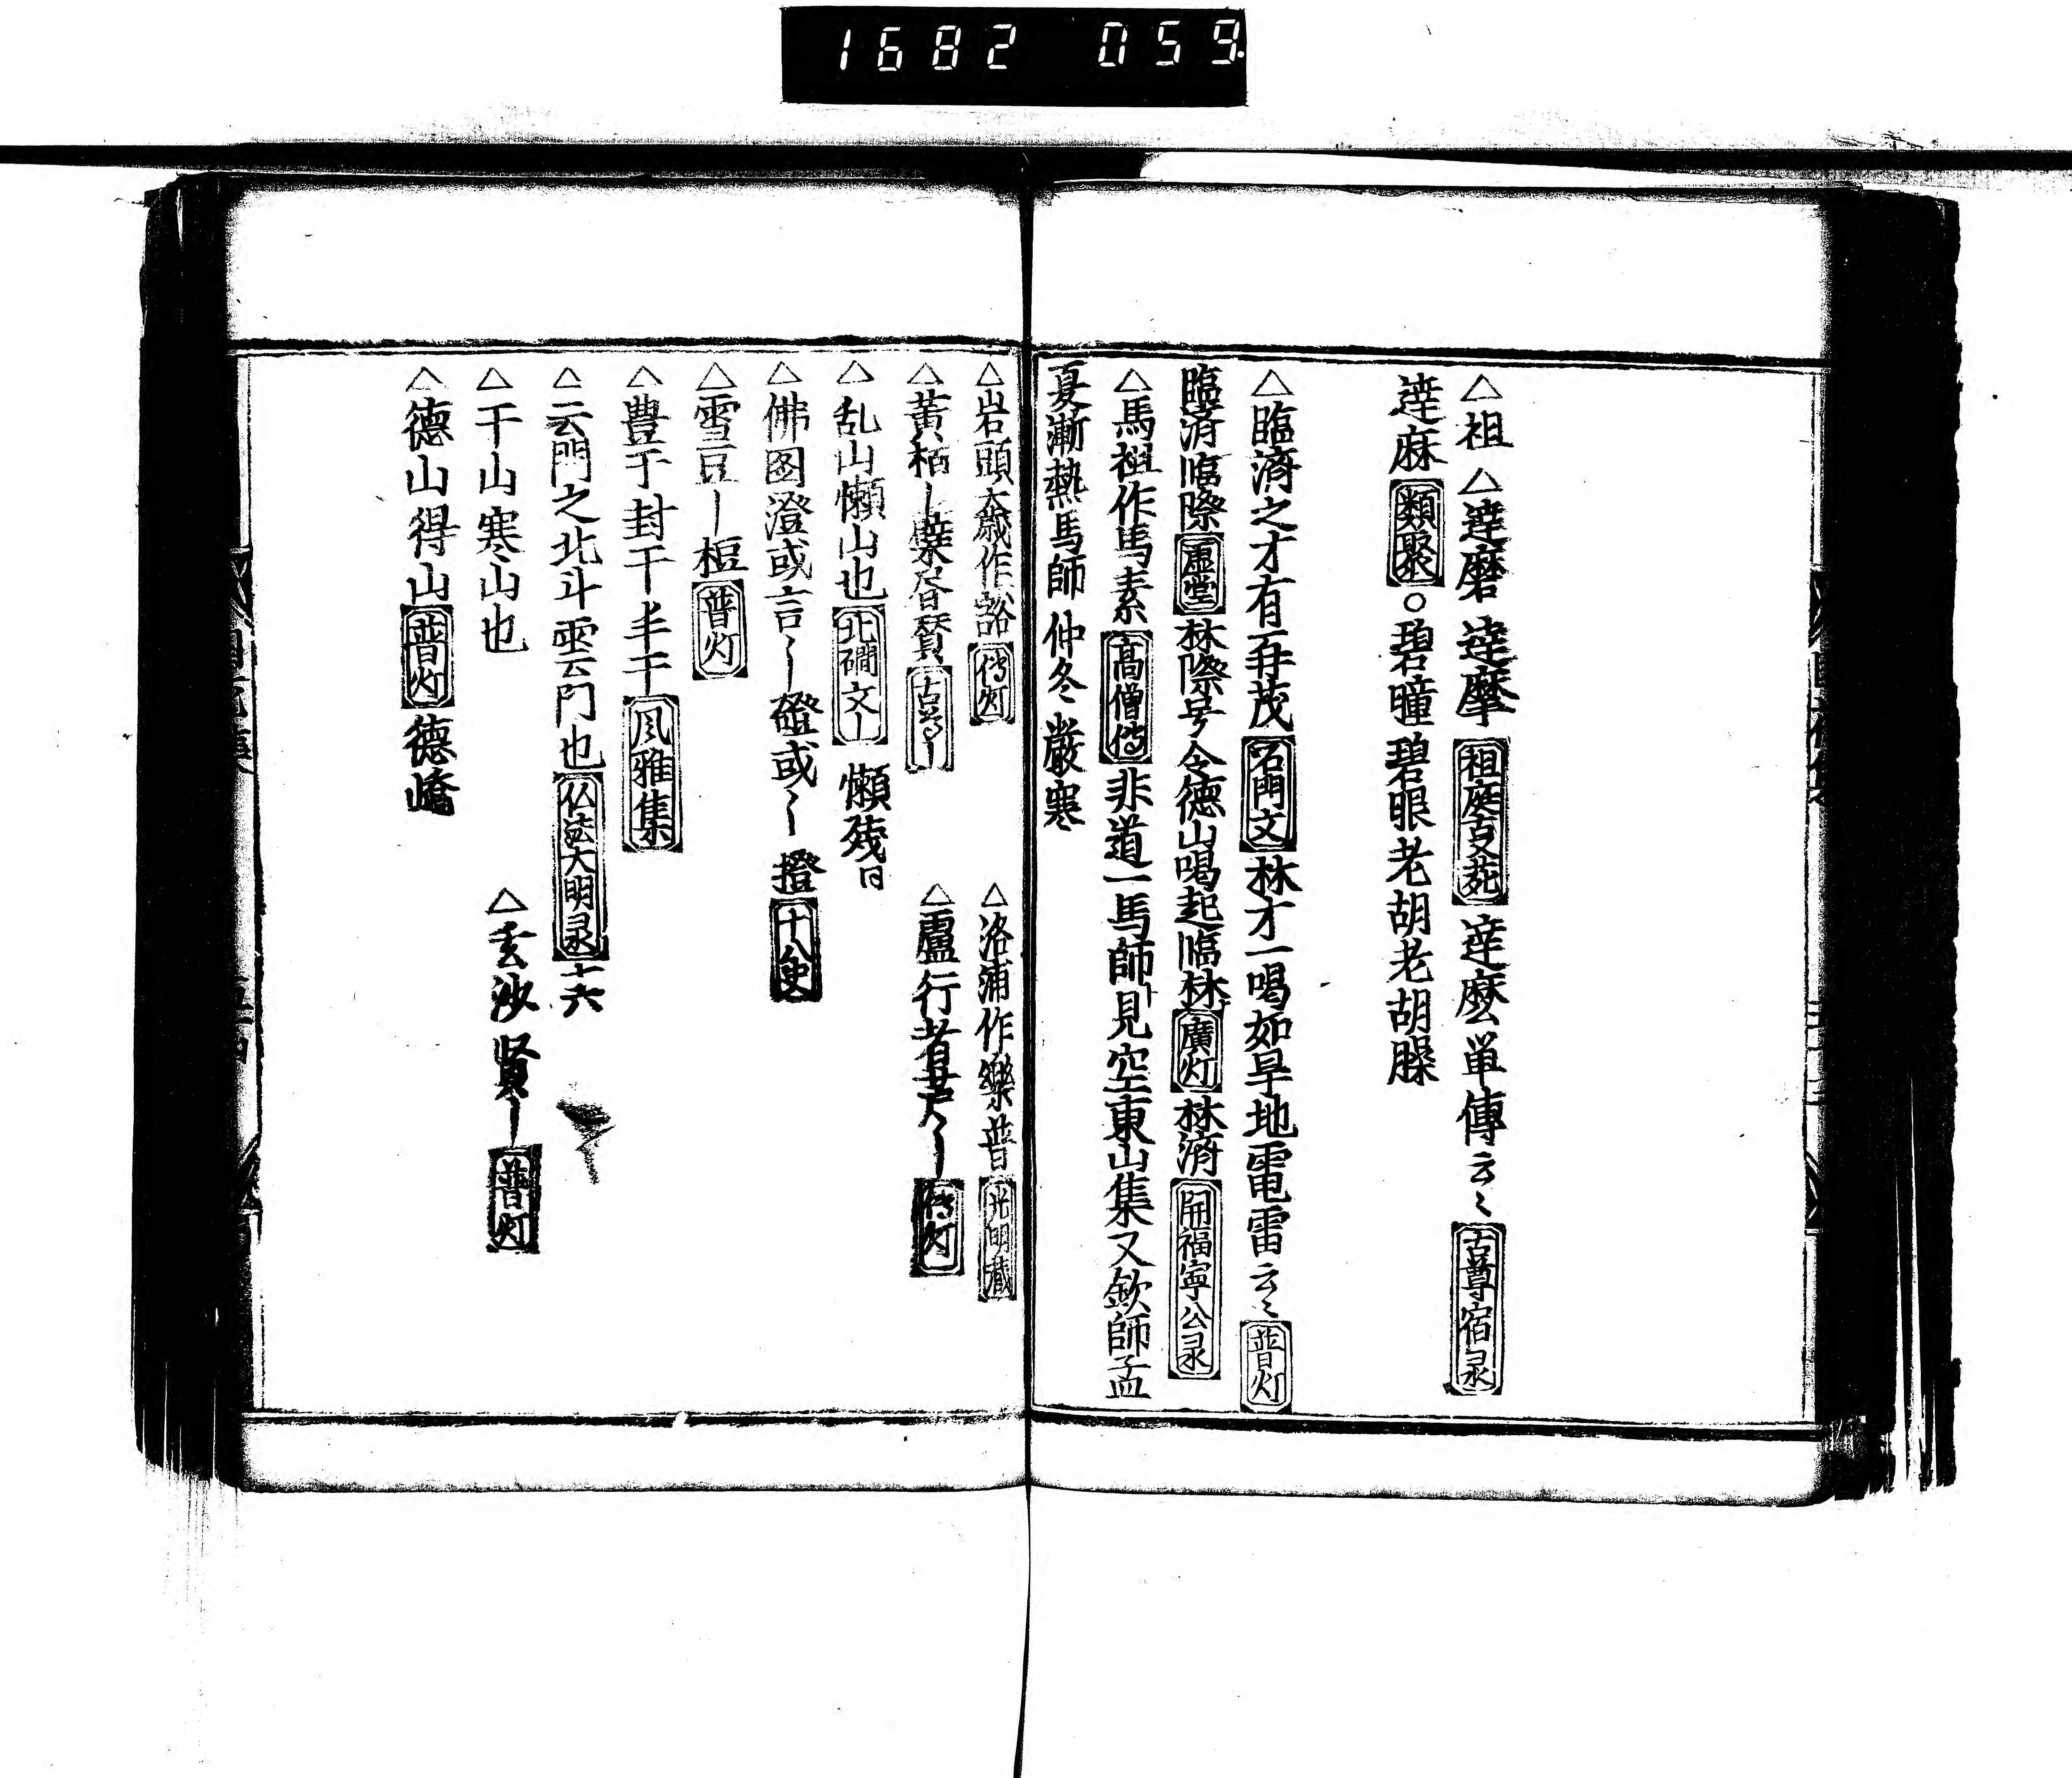 1682 059
△祖 △達磨 達摩 祖庭事苑 達麽單傳云〻 古尊宿彔
達麻 類聚 ○碧瞳碧眼老胡老胡臊
△臨濟之才有再茂 石門文 林才一喝如旱地電雷云〻 普灯
臨济臨際 虚堂 林際号令德山喝起臨林 廣灯 林濟 開福寧公彔
△馬祖作馬素 高僧傳 非道一馬師見空東山集又欽師孟
夏漸熱馬師仲冬嚴寒
△岩頭大歳作豁 傳灯 △洛浦作樂普 光明藏
△黄栢〡蘗 △盧行者 傳灯
△乱山懶山也 北磵文〡 懶殘
△佛圖澄或言〻〡磴或〻〡撜 十八史
△雪豆〡桓 普灯
△豊于封干半干 風雅集
△云門之北斗雲門也 仏法大明彔 十六
△干山寒山也 △玄沙賢〡 普灯
△德山得山 普灯 德嶠